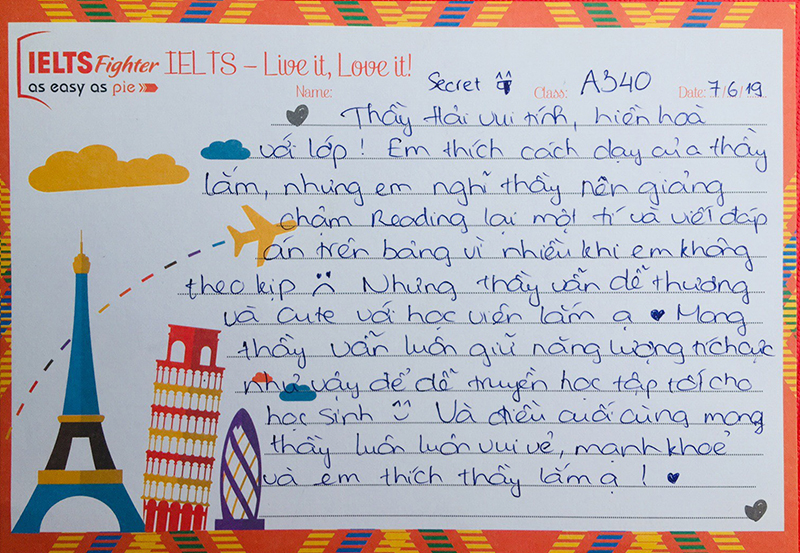 IELTS Fighter IELTS – Live it, Love it!
as easy as pie
Name: Secret Class: A340 Date: 7/6/19
Thầy Hải vui tính, hiền hoà
với lớp! Em thích cách dạy của thầy
lắm, nhưng em nghĩ thầy nên giảng
chậm Reading lại một tí và viết đáp
án trên bảng vì nhiều khi em không
theo kịp :( Nhưng thầy vẫn dễ thương
và cute với học viên lắm ạ ♥ Mong
thầy vẫn luôn giữ năng lượng tích cực
như vậy để dễ truyền học tập tới cho
học sinh :) Và điều cuối cùng mong
thầy luôn luôn vui vẻ, mạnh khoẻ
và em thích thầy lắm ạ ! ♥